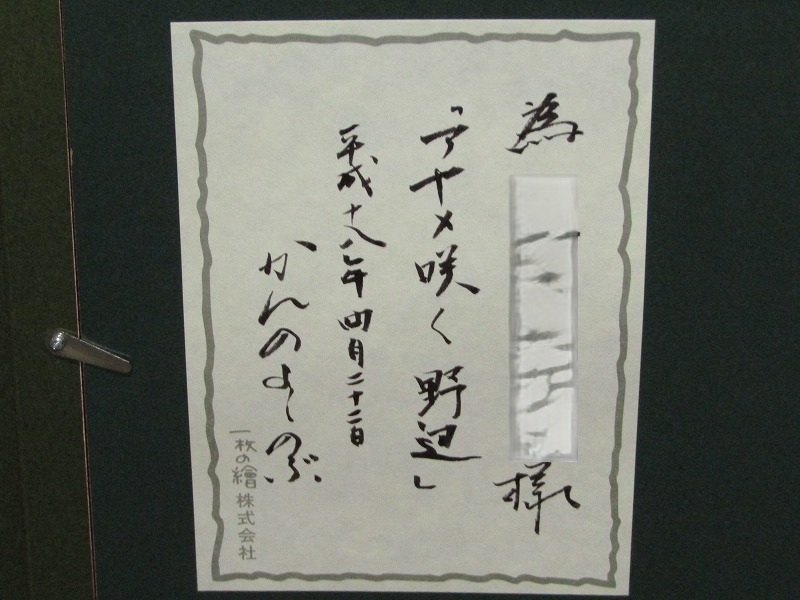 為 様
「アヤメ咲く野辺」
平成十八年四月二十二日
かんのよしのぶ
一枚の繪株式会社